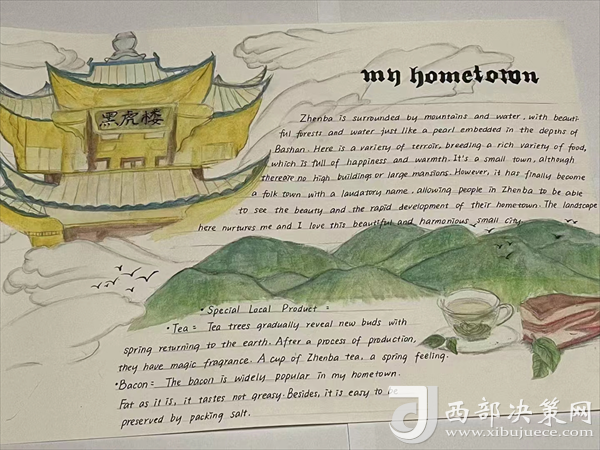 黑虎楼
my hometown
Zhenba is surrounded by mountains and water, with beauti-
ful forests and water just like a pearl embedded in the depths of
Bashan. Here is a variety of terroir, breeding a rich variety of food,
which is full of happiness and warmth. It's a small town, although
there're no high buildings or large mansions. However, it has finally become
a folk town with a laudatory name, allowing people in Zhenba to be able
to see the beauty and the rapid development of their hometown. The landscape
here nurtures me and I love this beautiful and harmonious small city.
• Special Local Product:
• Tea: Tea trees gradually reveal new buds with
spring returning to the earth. After a process of production,
they have magic fragrance. A cup of Zhenba tea, a spring feeling.
• Bacon: The bacon is widely popular in my hometown.
Fat as it is, it tastes not greasy. Besides, it is easy to be
preserved by packing salt.
西部决策网
www.xibujuece.com